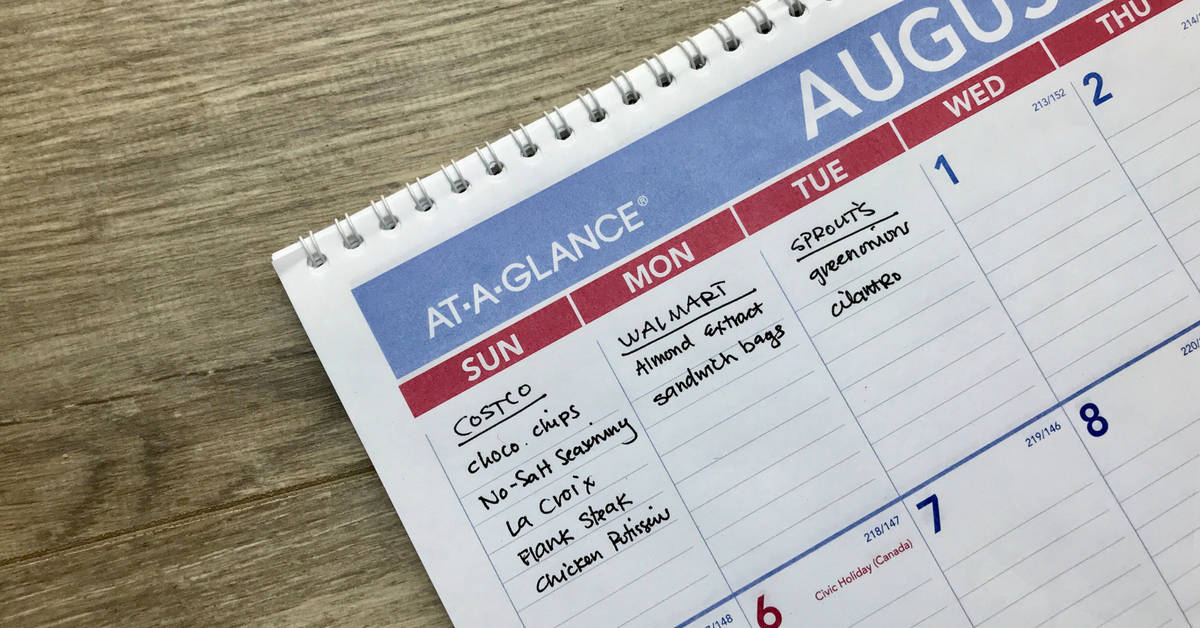 AUGUS
AT-A-GLANCE®
SUN MON TUE WED THU
COSTCO
choco. chips
No-Salt Seasoning
La Croix
Flank Steak
Chicken Putissin
WALMART
Almond Extract
sandwich bags
SPROUT'S
green onions
cilantro
213/152
1
214/
2
7/148
6
Civic Holiday (Canada)
218/147
7
219/146
8
220/